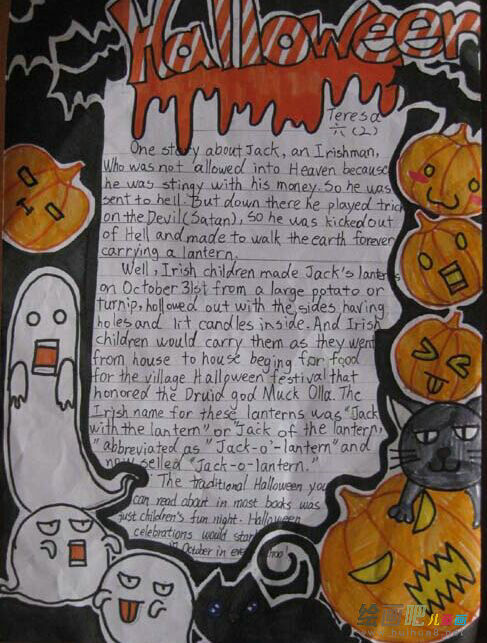 Halloween
Teresa
六(2)
One story about Jack, an Irishman,
Who was not allowed into Heaven because
he was stingy with his money. So he was
sent to hell. But down there he played trick
on the Devil(Satan), So he was kicked out
of Hell and made to walk the earth forever
carrying a lantern.
Well, Irish children made Jack's lanterns
on October 31st from a large potato or
turnip, hollowed out with the sides having
holes and lit candles inside. And Irish
children would carry them as they went
from house to house beging for food
for the village Hallpween festival that
honored the Druid god Muck Olla. The
Irish name for these lanterns was "Jack
with the lantern" or "Jack of the lantern,
"abbreviated as "Jack-o'-lantern" and
now selled "Jack-o-lantern."
The traditional Halloween you
can read about in most books was
just children's fun night. Halloween
celebrations would start
in October in every
绘画吧
www.huihua8.net